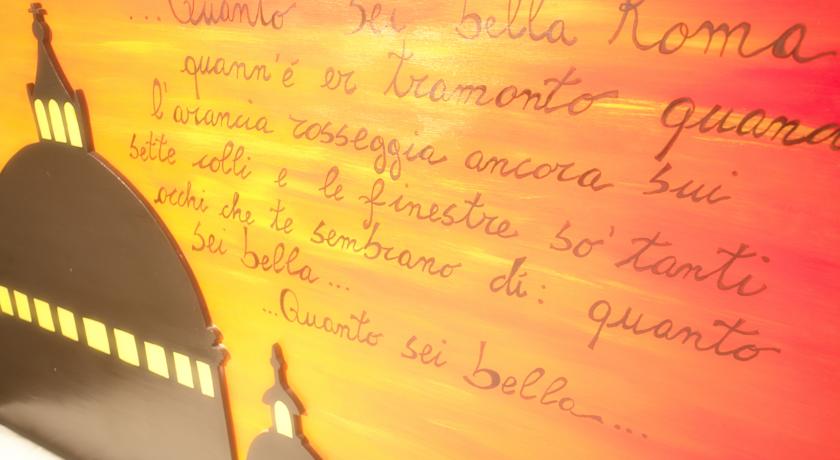 ...Quanto sei bella Roma
quann'é er tramonto quand
l'arancia rosseggia ancora sui
sette colli e le finestre so' tanti
occhi che te sembrano di: quanto
sei bella...
...Quanto sei bella...